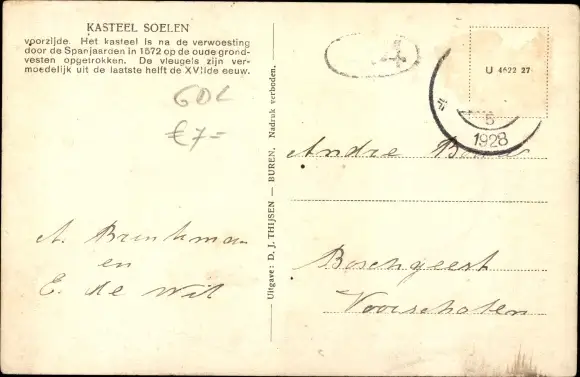 KASTEEL SOELEN
voorzijde. Het kasteel is na de verwoesting
door de Spanjaarden in 1572 op de oude grond-
vesten opgetrokken. De vleugels zijn ver-
moedelijk uit de laatste helft de XVIIde eeuw.
GDL
€7=
A. Brinkman
en
E. de Wit
Uitgave: D. J. THIJSEN — BUREN. Nadruk verboden.
4
U 4622 27
5
1928
Andre
Boschgeest
Voorschoten